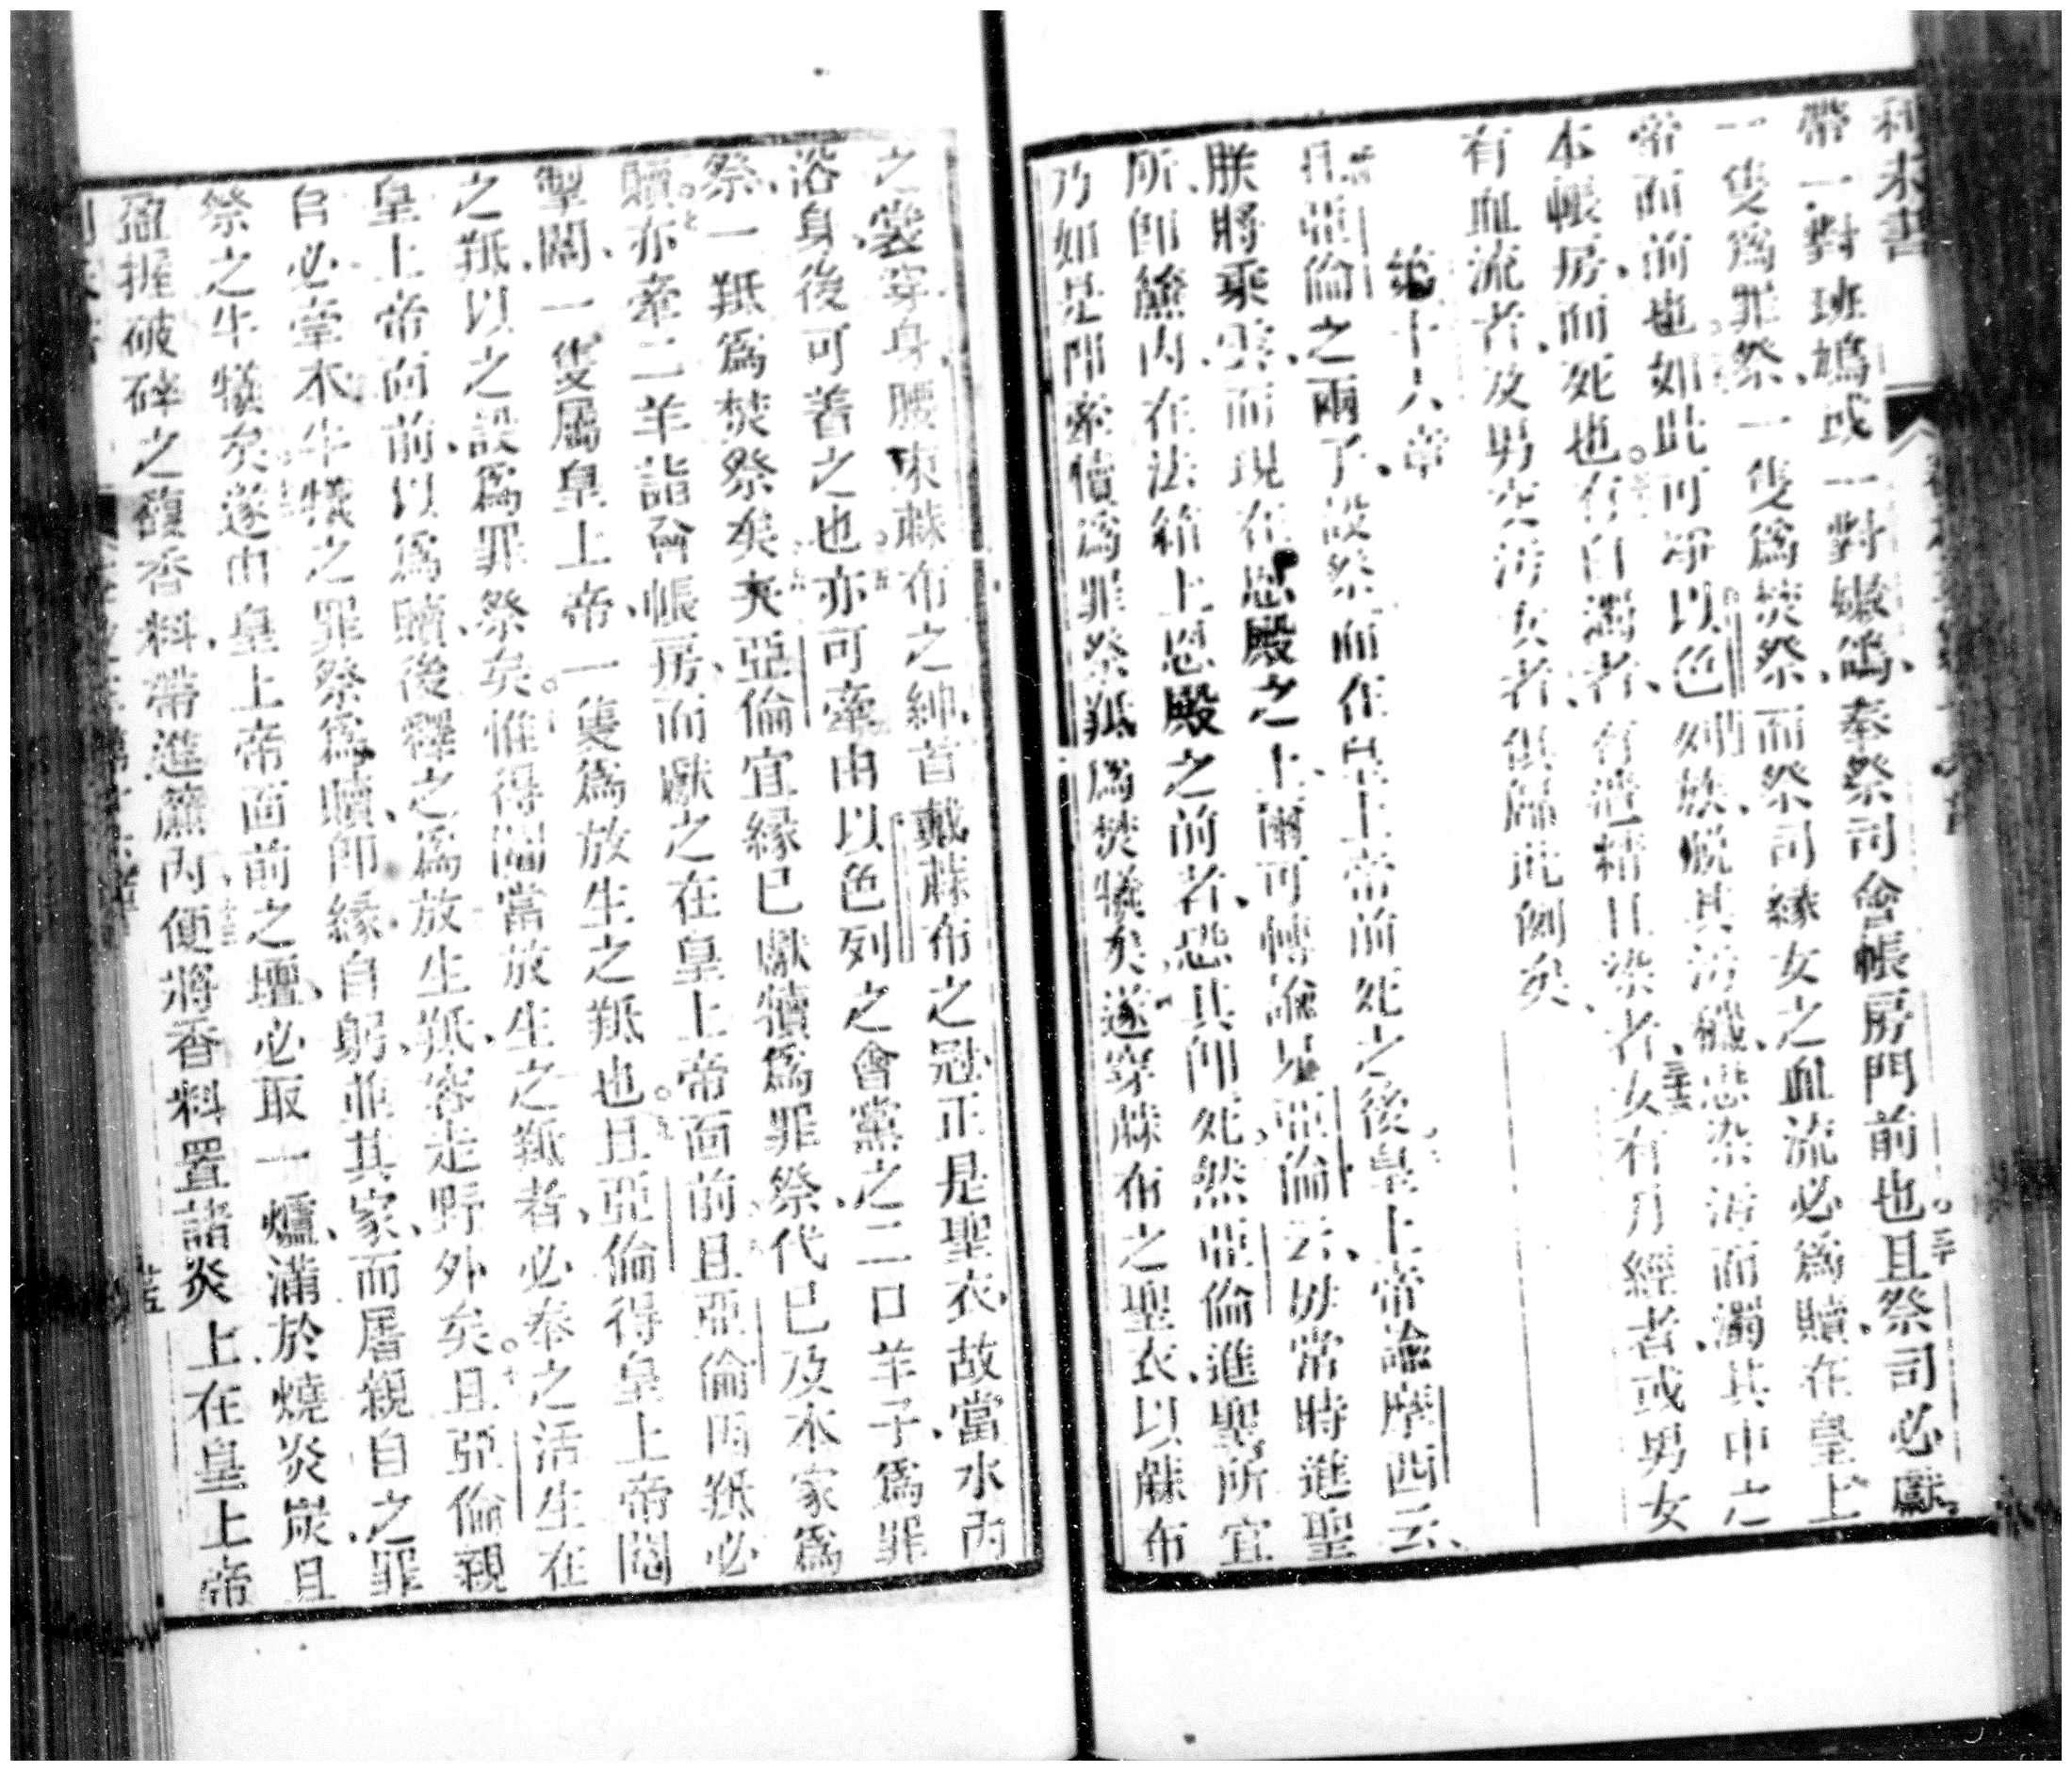 利未書
帶一對班鳩或一對嫩鴿奉祭司會帳房門前也且祭司必獻
一隻爲罪祭一隻爲焚祭而祭司緣女之血流必爲贖在皇上
帝面前也如此可淨以色列族脫其污穢恐染污而濁其中之
本帳房而死也有自濁者有遺精且染者女有月經者或男女
有血流者及男交污女者俱屬此例矣
第十六章
且亞倫之兩子設祭而在皇上帝前死之後皇上帝諭摩西云
朕將乘雲而現在恩殿之上爾可轉諭兄亞倫云毋常時進聖
所卽簾內在法箱上恩殿之前者恐其卽死然亞倫進聖所宜
乃如是卽牽犢爲罪祭羝爲焚犧矣遂穿蔴布之聖衣以蔴布
之裳穿身腰束蔴布之紳首戴蔴布之冠正是聖衣故當水內
浴身後可着之也亦可牽由以色列之會黨之二口羊子爲罪
祭一羝爲焚祭矣夫亞倫宜緣已獻犢爲罪祭代已及本家爲
贖亦牽二羊詣會帳房而獻之在皇上帝面前且亞倫因羝必
掣鬮一隻屬皇上帝一隻爲放生之羝也且亞倫得皇上帝鬮
之羝以之設爲罪祭矣惟得鬮當放生之羝者必奉之活生在
皇上帝面前以爲贖後釋之爲放生羝容走野外矣且亞倫親
自必牽本牛犧之罪祭爲贖卽緣自躬並其家而屠親自之罪
祭之牛犧矣遂由皇上帝面前之壇必取一爐滿於燒炎炭且
盈握破碎之馥香料帶進簾內便將香料置諸炎上在皇上帝